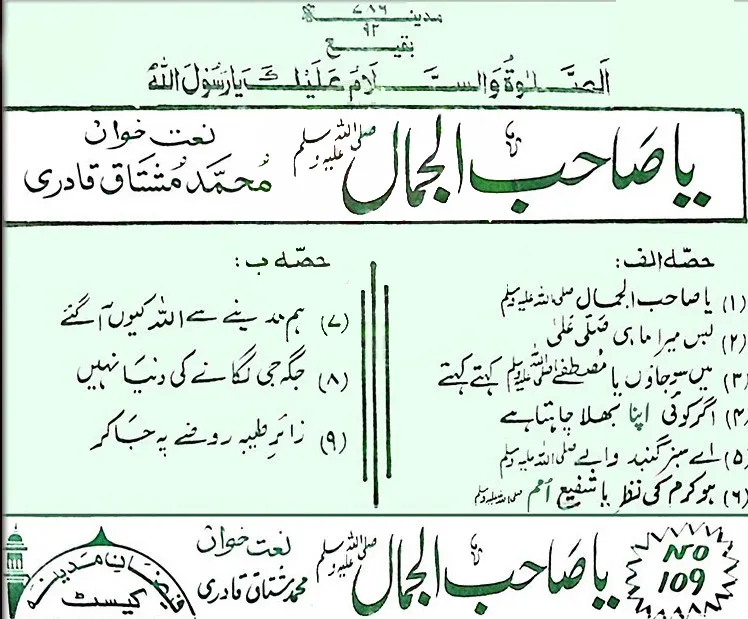 ۷۸۶
مدینہ
۹۲
بقیع
اَلصَّلٰوۃُ وَالسَّلَامُ عَلَیْكَ یَا رَسُوْلَ اللّٰہ
یا صاحب الجمال صلی اللہ علیہ وسلم
نعت خواں
محمّد مُشتاق قادری
حصّہ الف:
(۱) یا صاحب الجمال صلی اللہ علیہ وسلم
(۲) بس میرا ماہی صَلِّی عَلیٰ
(۳) میں سو جاؤں یا مُصْطفےٰ صلی اللہ علیہ وسلم کہتے کہتے
(۴) اگر کوئی اپنا بھلا چاہتا ہے
(۵) اے سبز گنبد والے صلی اللہ علیہ وسلم
(۶) ہو کرم کی نظر یا شفیعِ اُمم صلی اللہ علیہ وسلم
حصّہ ب:
(۷) ہم مدینے سے اللہ کیوں آ گئے
(۸) جگہ جی لگانے کی دنیا نہیں
(۹) زائرِ طیبہ روضے پہ جا کر
NO
109
یا صاحب الجمال صلی اللہ علیہ وسلم
نعت خواں
محمد مشتاق قادری
فیضانِ مدینہ
کیسٹ